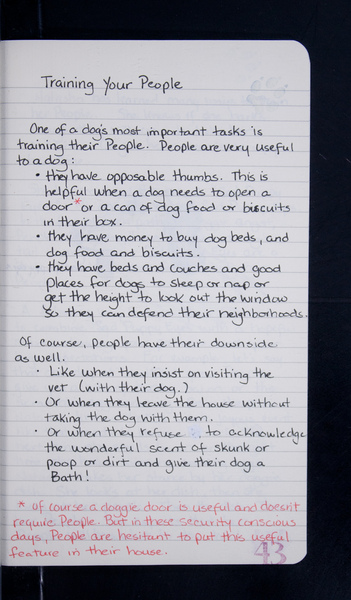 Training Your People
One of a dog's most important tasks is
training their People. People are very useful
to a dog:
• they have opposable thumbs. This is
helpful when a dog needs to open a
door * or a can of dog food or biscuits
in their box.
• they have money to buy dog beds, and
dog food and biscuits.
• they have beds and couches and good
places for dogs to sleep or nap or
get the height to look out the window
so they can defend their neighborhoods.
Of course, people have their downside
as well.
• Like when they insist on visiting the
vet (with their dog.)
• Or when they leave the house without
taking the dog with them.
• Or when they refuse to acknowledge
the wonderful scent of skunk or
poop or dirt and give their dog a
Bath!
* of course a doggie door is useful and doesn't
require People. But in these security conscious
days, People are hesitant to put this useful
feature in their house.
43